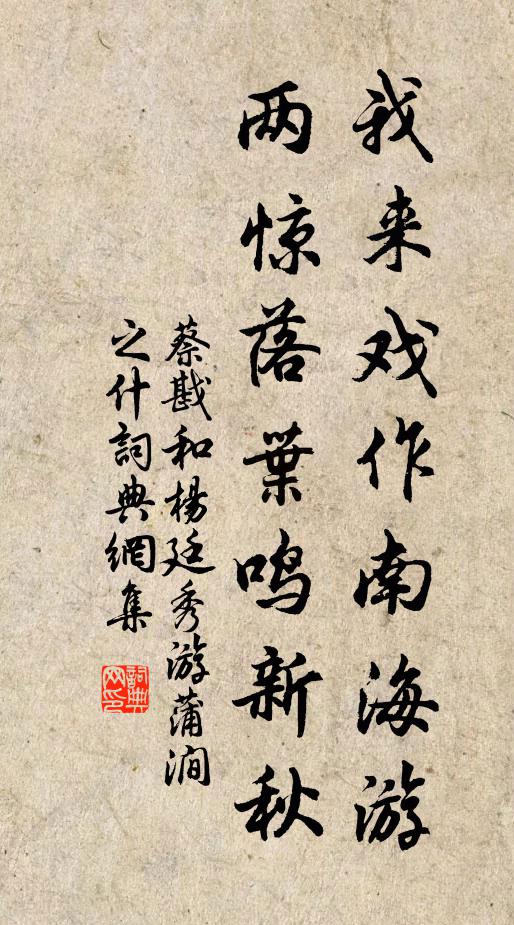 我来戏作南海游
两惊落葉鸣新秋
蔡戡和楊廷秀游蒲澗
之什詞典網集
詞典
网印